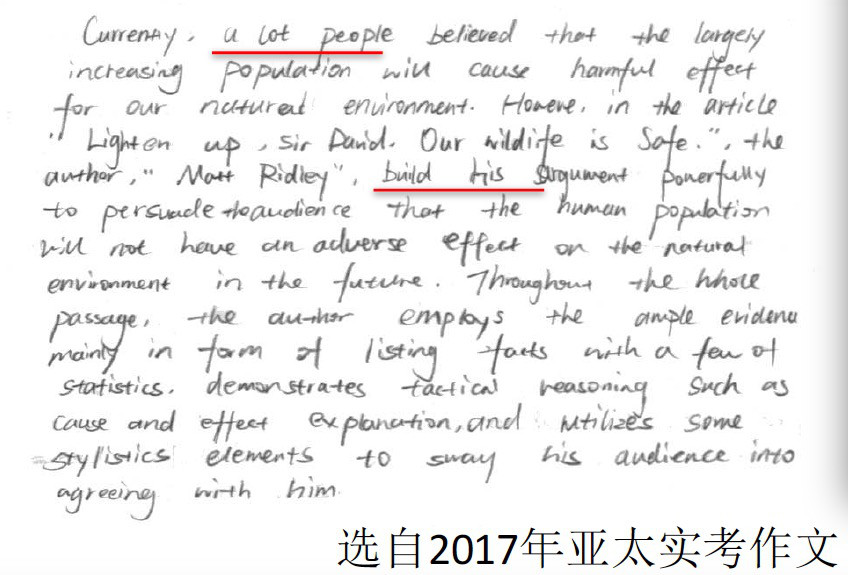 Currently, a lot people believed that the largely
increasing population will cause harmful effect
for our natural environment. Howeve, in the article
" Lighten up, Sir David. Our wildlife is Safe.", the
author, "Matt Ridley", build his argument powerfully
to persuade the audience that the human population
will not have an adverse effect on the natural
environment in the future. Throughout the whole
passage, the author employs the ample evidence
mainly in form of listing facts with a few of
statistics. demonstrates tactical reasoning such as
cause and effect explanation, and utilizes some
stylistics elements to sway his audience into
agreeing with him.
选自2017年亚太实考作文